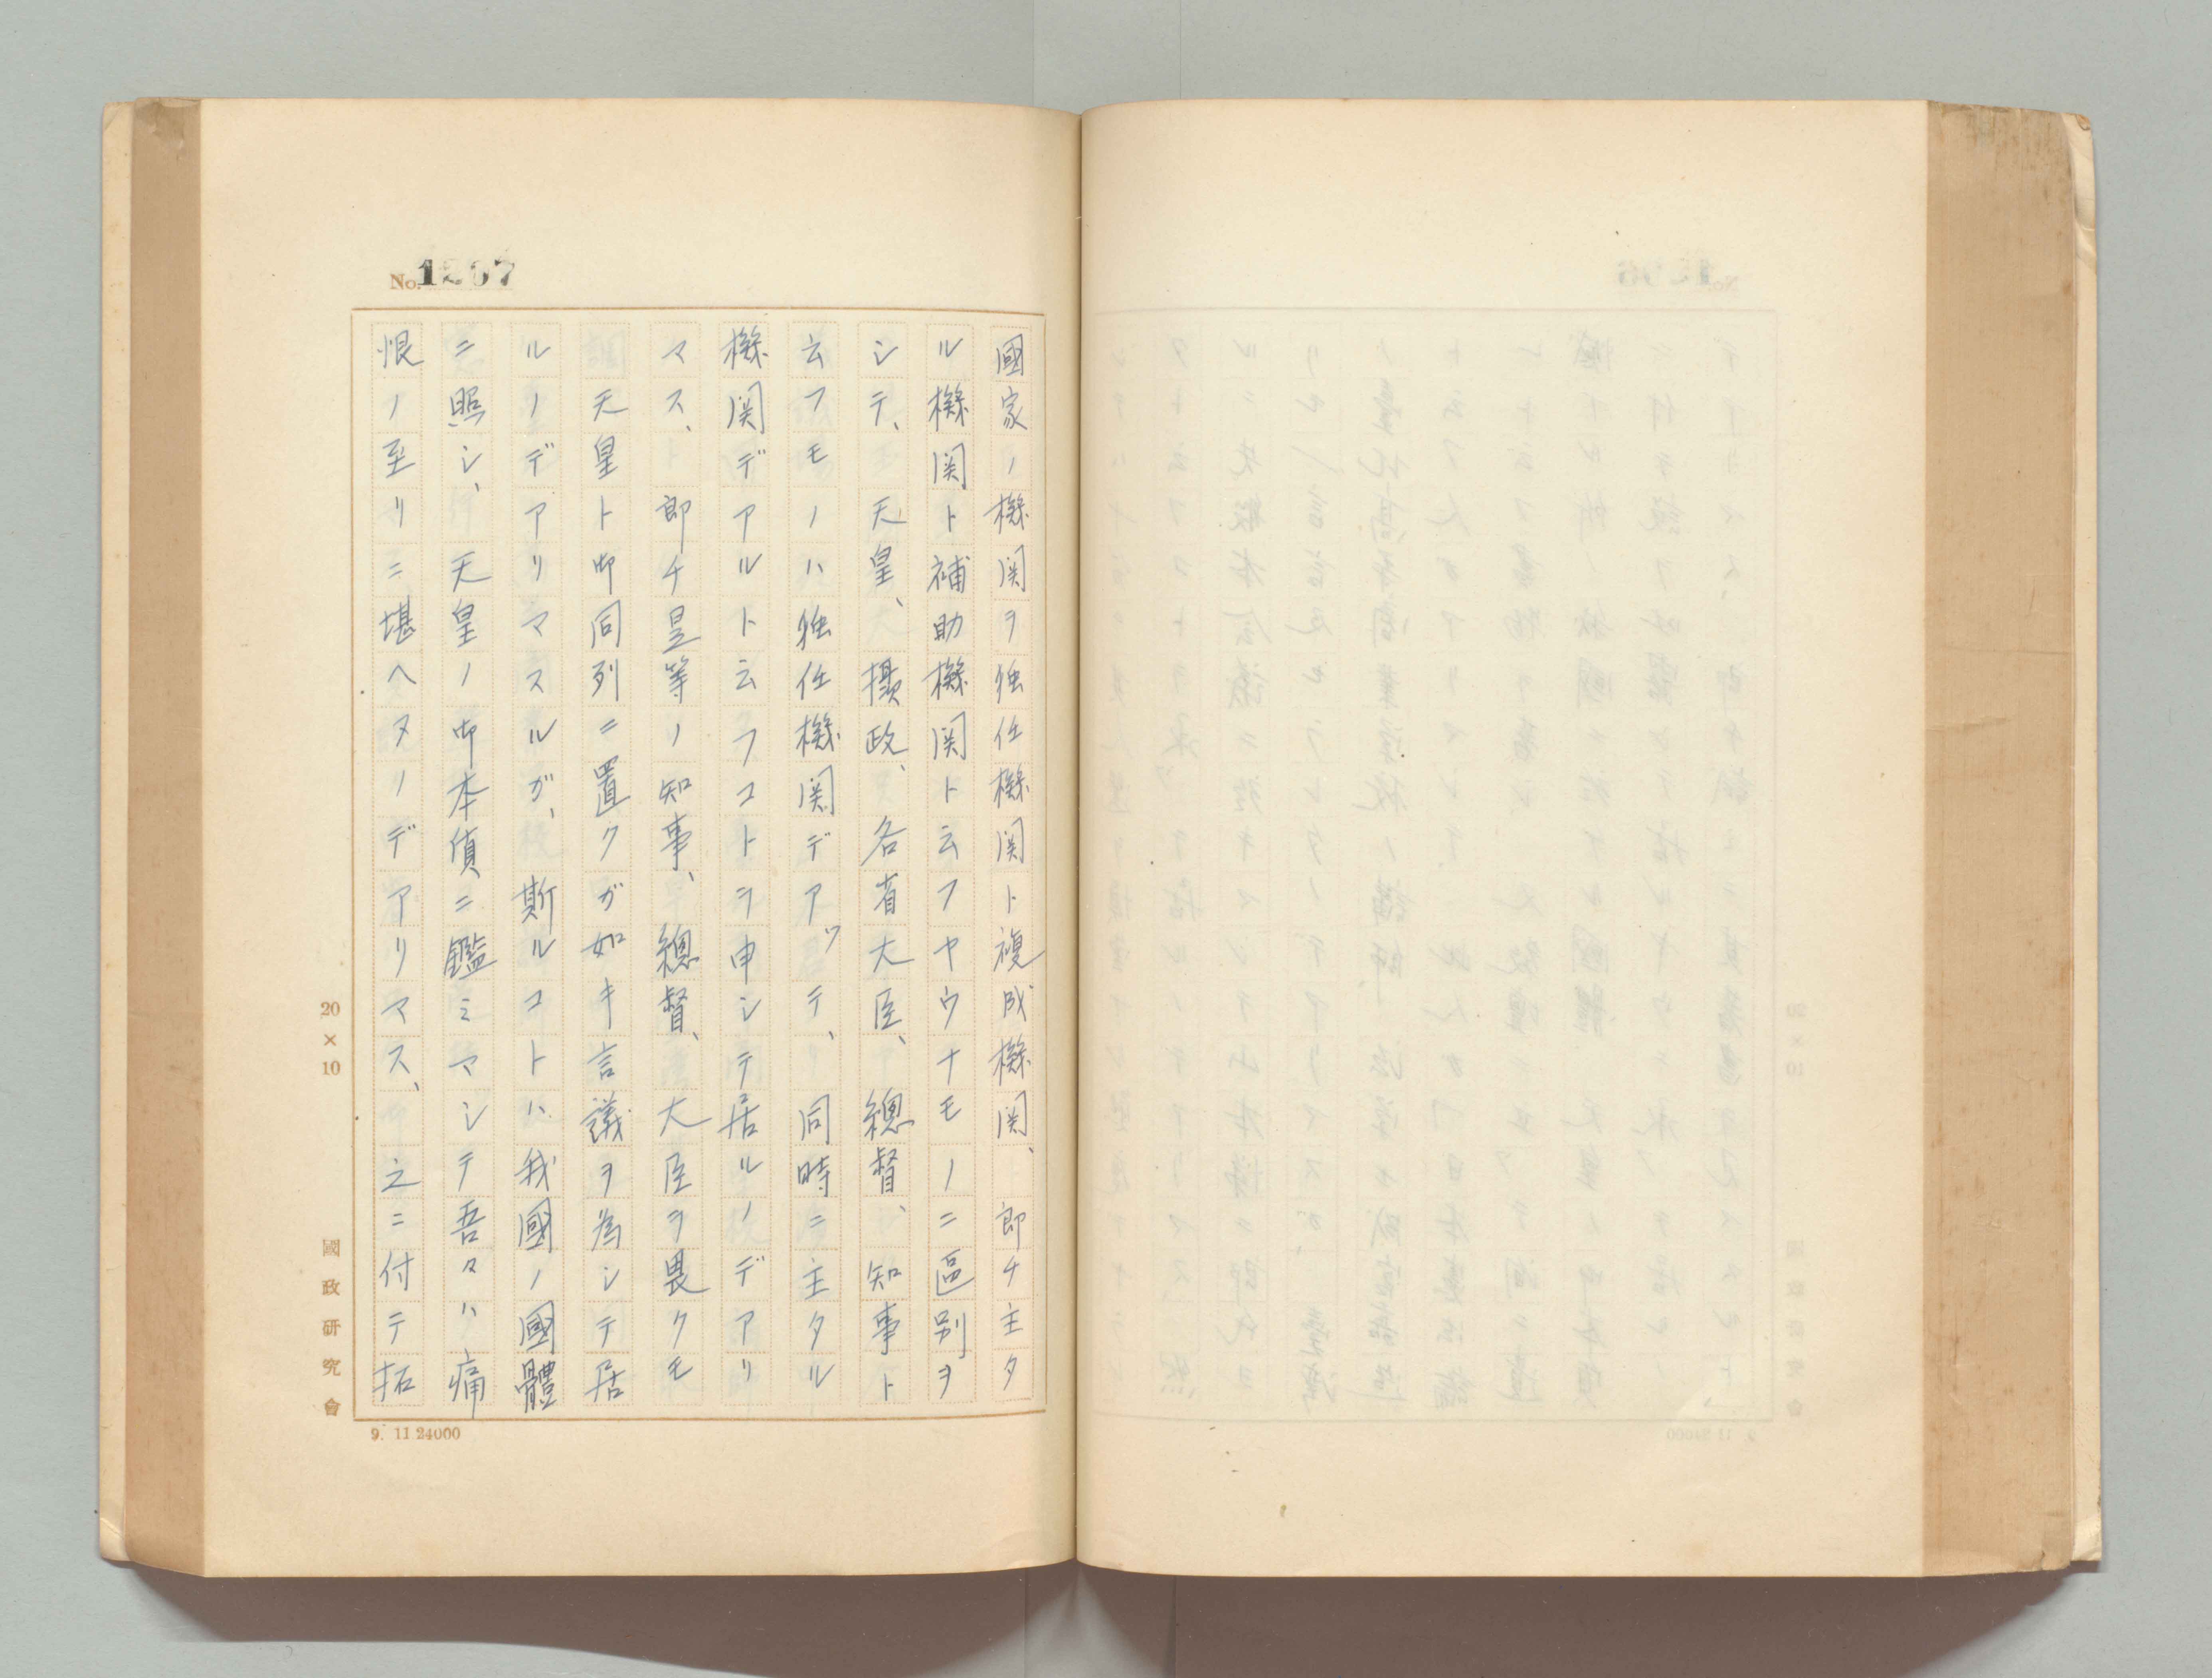 No. 1207
國家ノ機関ヲ独任機関ト複成機関、即チ主タ
ル機関ト補助機関ト云フヤウナモノニ區別ヲ
シテ、天皇、攝政、各省大臣、總督、知事ト
云フモノハ独任機関デアッテ、同時ニ主タル
機関デアルト云フコトヲ申シテ居ルノデアリ
マス、即チ是等ノ知事、總督、大臣ヲ畏クモ
天皇ト御同列ニ置クガ如キ言議ヲ為シテ居
ルノデアリマスルガ、斯ルコトハ我國ノ國體
ニ照シ、天皇ノ御本質ニ鑑ミマシテ吾々ハ痛
恨ノ至リニ堪ヘヌノデアリマス、之ニ付テ拓
20×10
國政研究會
9. 11 24000